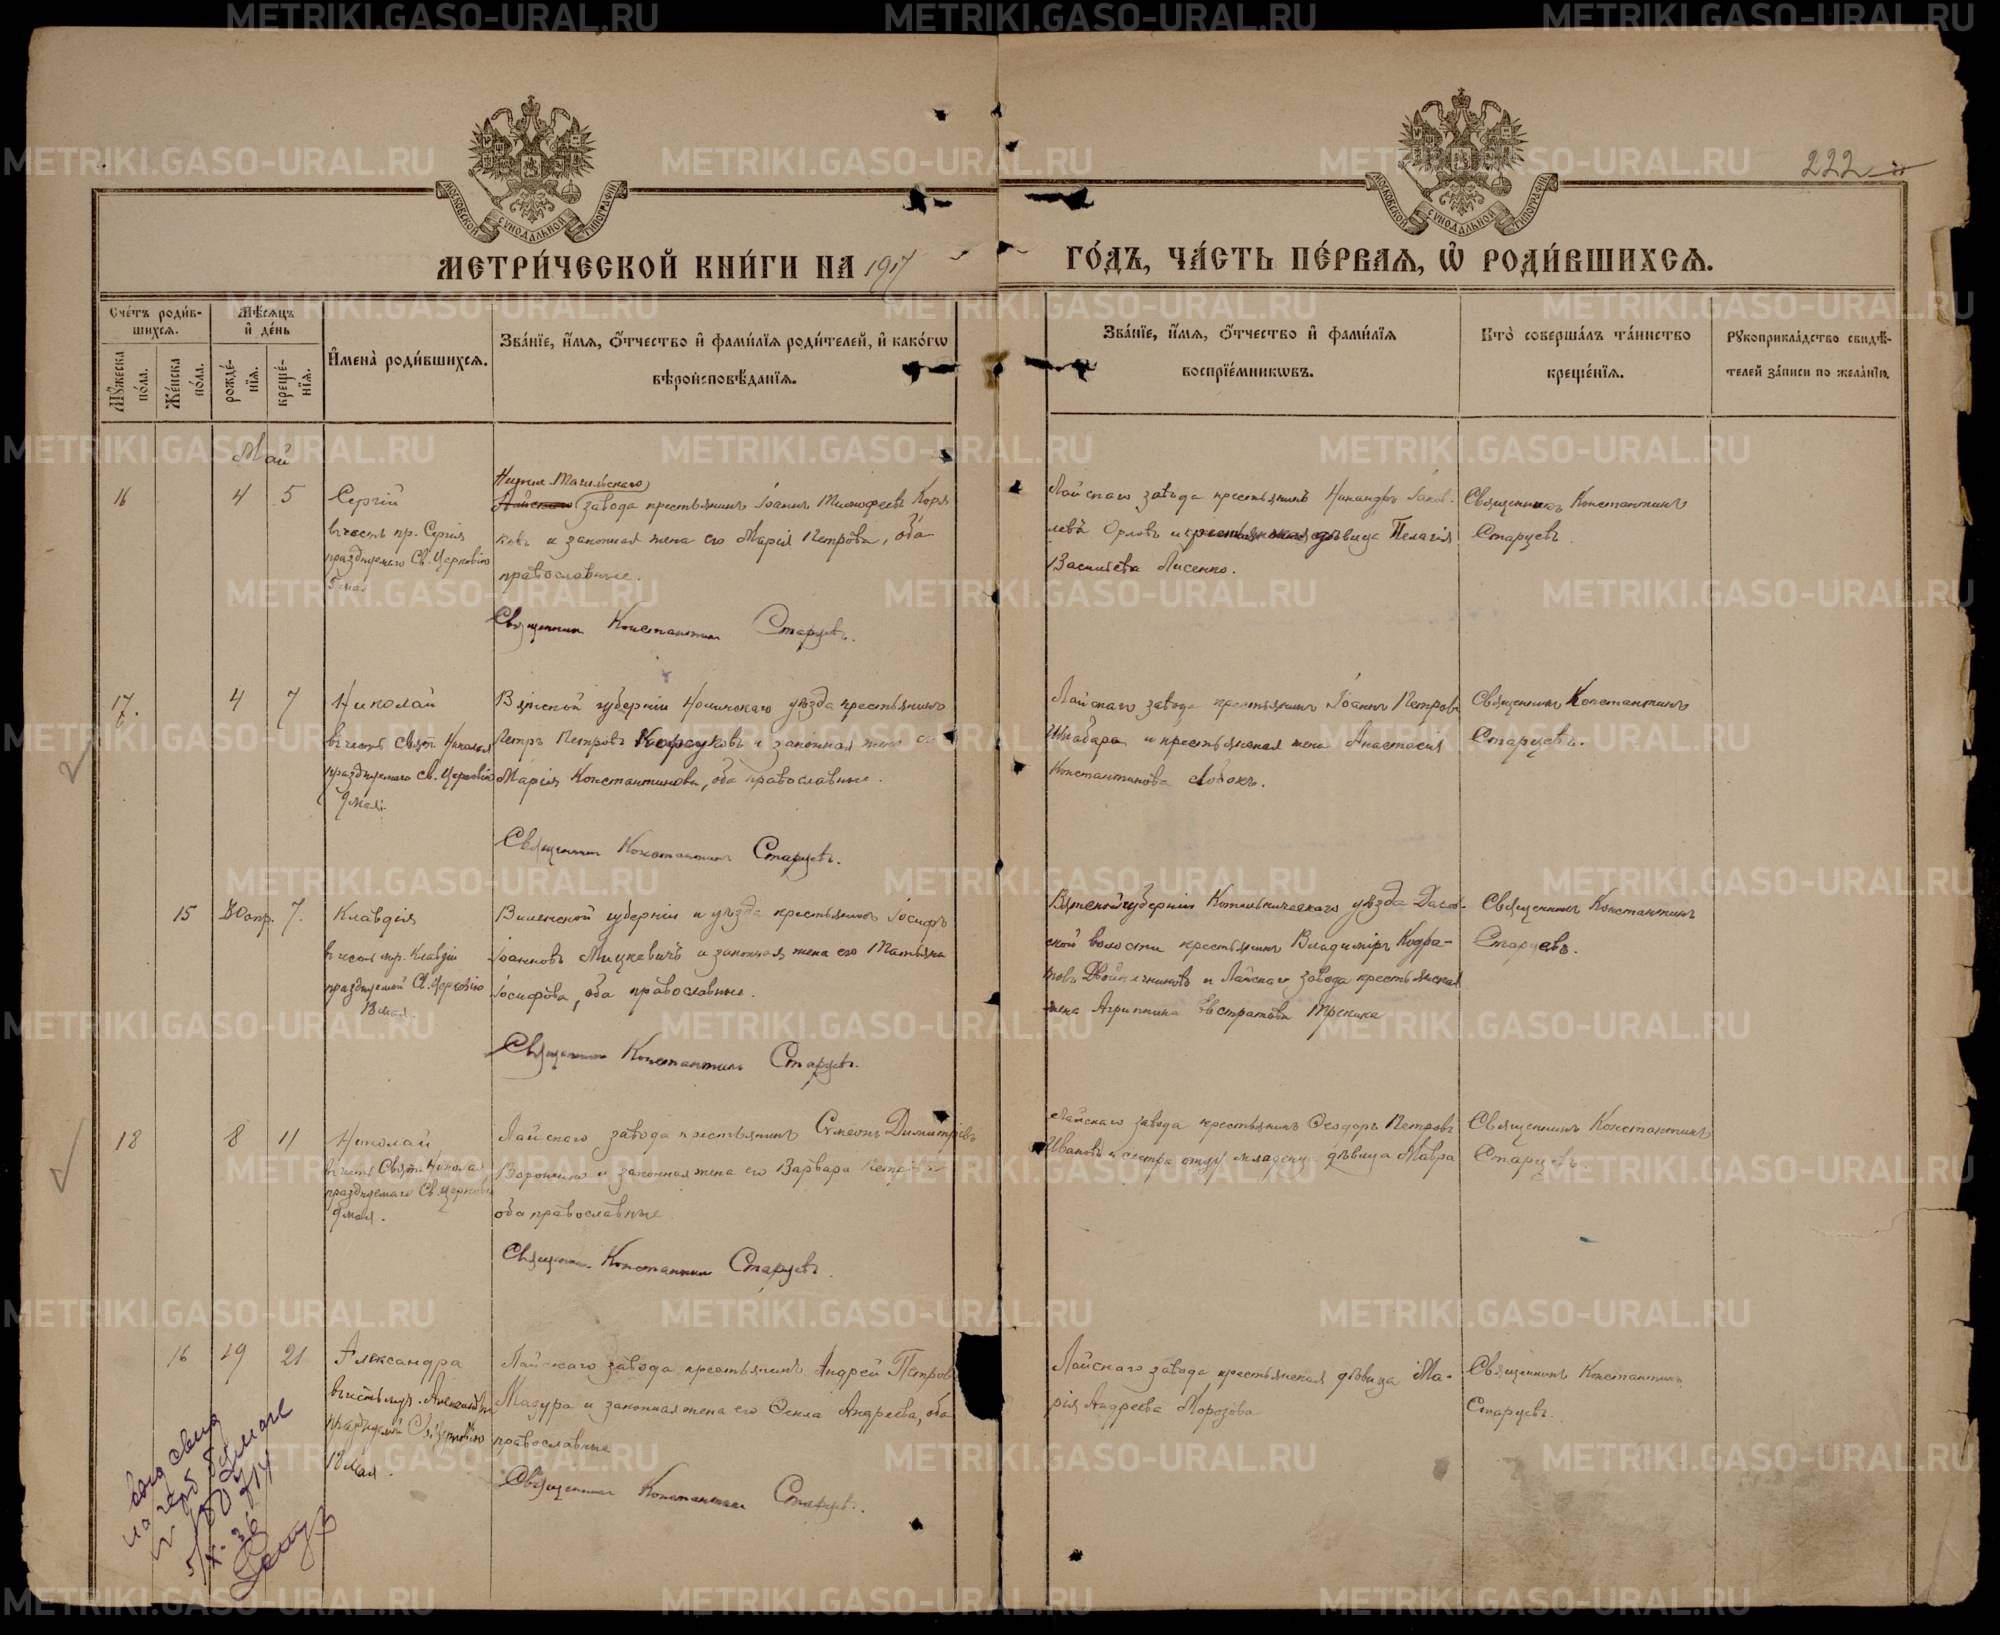 222
МОСКОВСКОЙ СУНОДАЛЬНОЙ ТИПОГРАФІИ
МОСКОВСКОЙ СУНОДАЛЬНОЙ ТИПОГРАФІИ
МЕТРИ́ЧЕСКОЙ КНИ́ГИ НА 1917
ГО́ДЪ, ЧА́СТЬ ПЕ́РВАЯ, Ѡ РОДИ́ВШИХСЯ.
Сче́тъ роди́в-
шихся.
Му́жеска
по́ла.
Же́нска
по́ла.
Мѣ́сяцъ
и де́нь
рожде́-
нїя.
креще́-
нїя.
Имена̀ роди́вшихся.
Зва́нїе, и́мя, о́тчество и фами́лїя роди́телей, и како́гѡ
вѣроисповѣ́данїя.
Зва́нїе, и́мя, о́тчество и фами́лїя
воспрїе́мникѡвъ.
Кто̀ соверша́лъ та́инство
креще́нїя.
Рукоприкла́дство свидѣ́-
телей за́писи по жела́нїю.
Май
16 4 5
Сергій
въ честь пр. Сергія
празднуемаго Св. Церковію
5 мая
Нижне-Тагильскаго
Лайскаго завода крестьянинъ Іоаннъ Тимофеевъ Коря
ковъ и законная жена его Марія Петрова, оба
православные.
Священникъ Константинъ Старцевъ.
Лайскаго завода крестьянинъ Никандръ Іаков-
левъ Орловъ и крестьянская дѣвица Пелагія
Васильева Лисенко.
Священникъ Константинъ
Старцевъ
17. 4 7
Николай
въ честь Свят. Николая
празднуемаго Св. Церковію
9 мая.
Вятской губерніи Нолинскаго уѣзда крестьянинъ
Петръ Петровъ Корсуковъ и законная жена его
Марія Константинова, оба православные.
Священникъ Константинъ Старцевъ.
Лайскаго завода крестьянинъ Іоаннъ Петровъ
Шкабара и крестьянская жена Анастасія
Константинова Лобокъ.
Священникъ Константинъ
Старцевъ.
15 30 апр. 7.
Клавдія
въ честь мр. Клавдіи
празднуемой Св. Церковію
18 мая.
Виленской губерніи и уѣзда крестьянинъ Іосифъ
Іоанновъ Мицкевичъ и законная жена его Татьяна
Іосифова, оба православные.
Священникъ Константинъ Старцевъ.
Вятской губерніи Котельническаго уѣзда
ской волости крестьянинъ Владиміръ Кодра-
товъ Двойничниковъ и Лайскаго завода крестьянская
жена Агриппина Евстратова
Священникъ Константинъ
Старцевъ.
18 8 11
Николай
въ честь Свят. Николая
празднуемаго Св. Церковію
9 мая.
Лайскаго завода крестьянинъ Сѵмеонъ Димитріевъ
Воронинъ и законная жена его Варвара Петрова
оба православные
Священникъ Константинъ Старцевъ.
Лайскаго завода крестьянинъ Ѳеодоръ Петровъ
Ивановъ и сестра отца младенца дѣвица Мавра
Священникъ Константинъ
Старцевъ.
16 19 21
Александра
въ честь муч. Александры
празднуемой Св. Церковію
18 мая.
Лайскаго завода крестьянинъ Андрей Петровъ
Мазура и законная жена его Ѳекла Андреева, оба
православные
Священникъ Константинъ Старцевъ.
Лайскаго завода крестьянская дѣвица Ма-
рія Андреева Морозова
Священникъ Константинъ
Старцевъ.